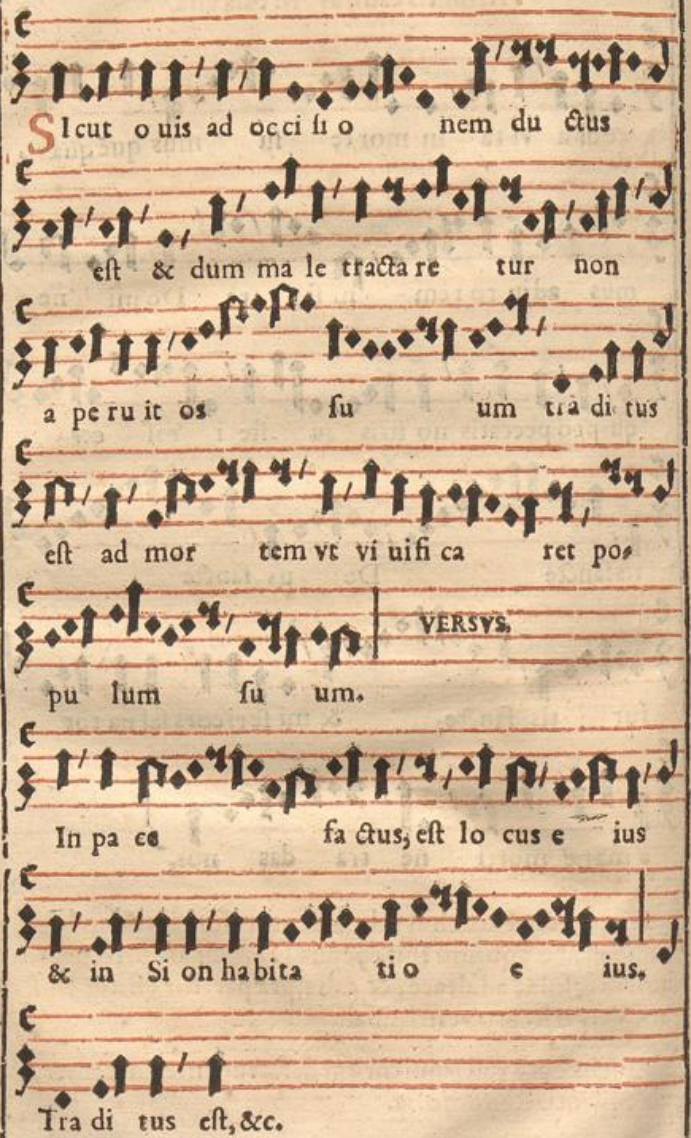 SIcut o uis ad oc ci ſi o nem du ctus
eſt & dum ma le tracta re tur non
a pe ru it os ſu um tra di tus
eſt ad mor tem vt vi uifi ca ret po-
pu lum ſu um. VERSVS.
In pa ce fa ctus, eſt lo cus e ius
& in Si on habita ti o e ius.
Tra di tus eſt, &c.